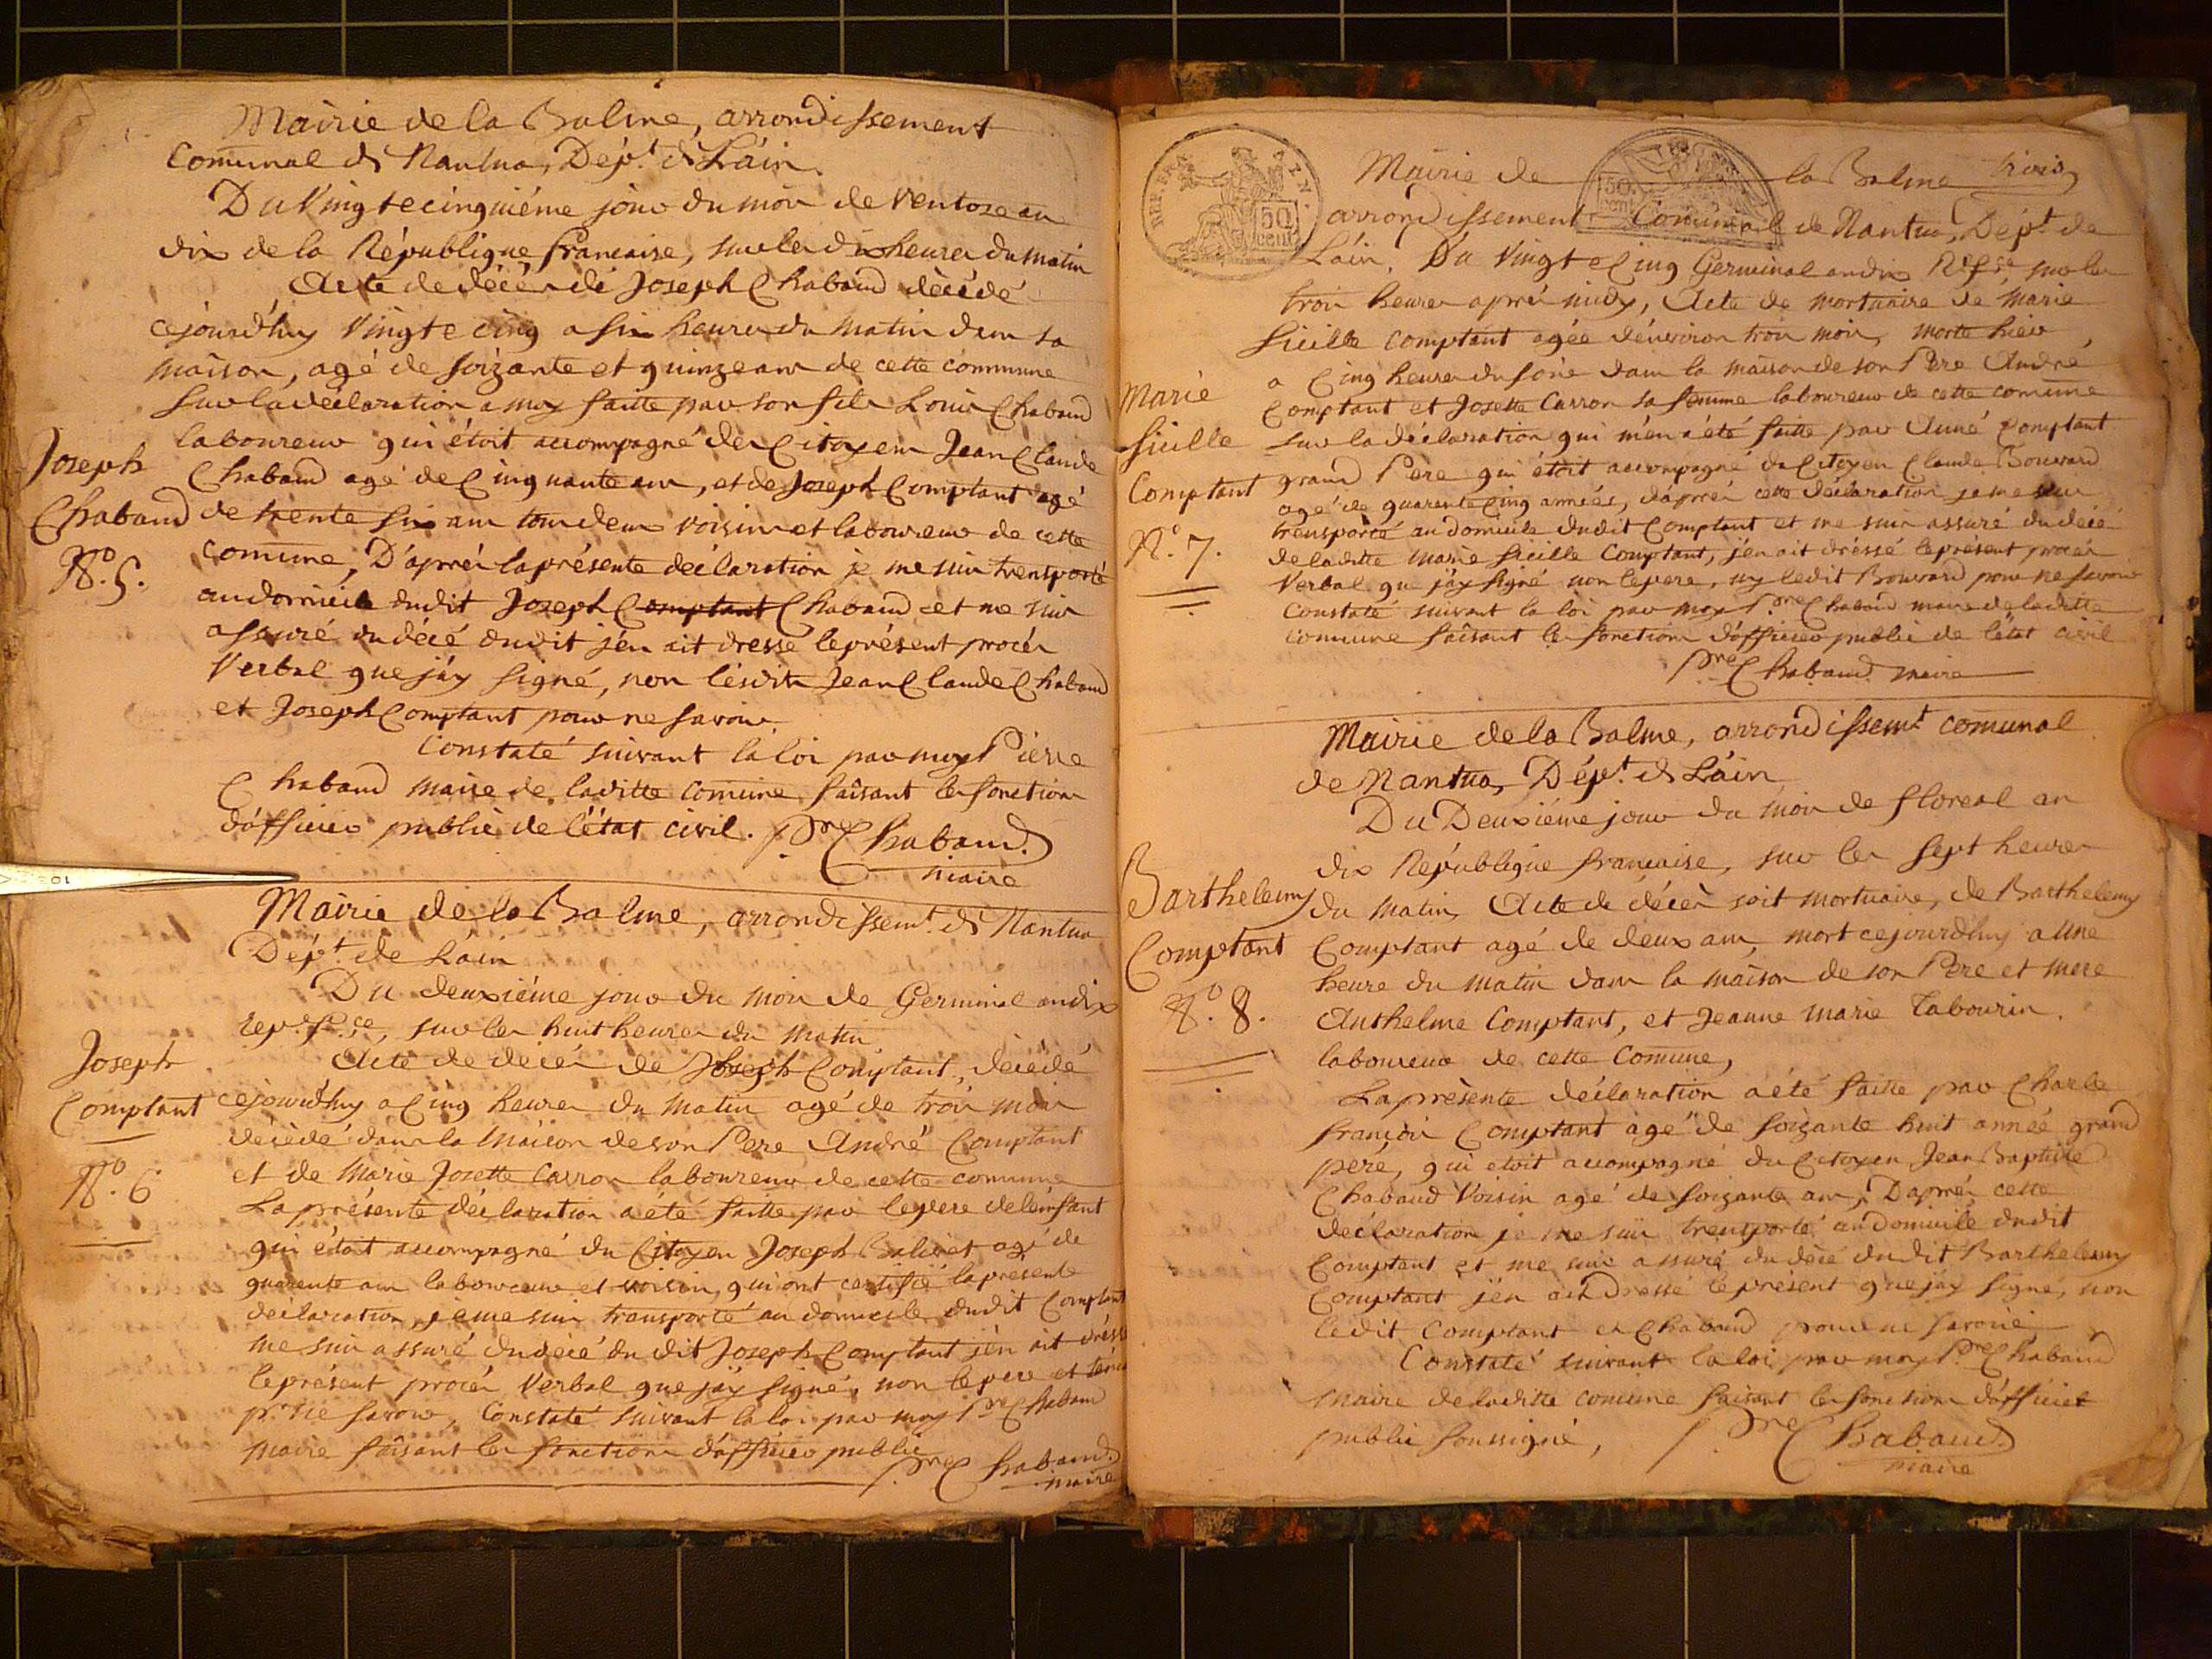 Mairie de la Balme, arrondissement
Comunal de Nantua, Dép.t de Láin.
Du Vingtecinquiéme jour du mois de Ventose an
dix de la République francaise, sur les dix heures du matin
Acte de décés de Joseph Chabaud décédé
cejourd'huy Vingtecinq a six heures du matin dans sa
maison, agé de soizante et quinze ans de cette commune
Sur la déclaration a moy faitte par son fils Louis Chabaud
laboureur qui étoit accompagné des Citoyens Jean Claude
Chabaud agé de Cinquante ans, et de Joseph Comptant agé
de trente six ans tous deux voisins et laboureurs de cette
comune, D'aprés la présente déclaration je me suis trensporté
au domicile dudit Joseph Comptant Chabaud et me suis
assuré du décé dudit j'en ait dressé le présent procés
Verbal que j'áy signé, non lésdits Jean Claude Chabaud
et Joseph Comptant pour ne savoir
Constaté suivant la loi par moy Piérre
Chabaud maire de laditte comune faisant les fonctions
d'officier public de l'état civil. Pre Chabaud.
maire
Joseph
Chabaud
N.o 5.
Mairie de la Balme, arrondissem.t de Nantua
Dép.t de Láin
Du deuxiéme jour du mois de Germinal an dix
rep.e f.se, sur les huit heures du matin
Acte de decés de Joseph Comptant, décédé
cejourd'huy a Cinq heures du matin agé de trois mois
décédé dans la maison de son Pere André Comptant
et de Marie Josette Carron laboureurs de cette commune
La présente déclaration a été faitte par le pere de l'énfant
qui étoit accompagné du Citoyen Joseph Balivet agé de
quarente ans laboureur et voisin, qui ont certifié la présente
déclaration, je me suis transporté au domicile dudit Comptant
me suis assuré du décé du dit Joseph Comptant j'én ait dréssé
le présent procés Verbal que j'áy signé, non le pere et
p.r ne savoir, Constaté suivant la loi par moy Pre Chabaud
Maire faisant les fonctions d'officier public
Pre Chabaud.
maire
Joseph
Comptant
N.o 6
Mairie de la Balme trois
arrondissement Comunal de Nantua, Dép.t de
Láin. Du Vingt Cinq Germinal an dix R.e f.se sur les
trois heures aprés midy, Acte de mortuaire de Marie
Sicille Comptant agée d'énviron trois mois, morte hier
a Cinq heures du soir dans la maison de son Pere André
Comptant et Josette Carron sa femme laboureurs de cette comune
sur la déclaration qui m'en a été faitte par Aimé Comptant
grand Pere qui étoit accompagné du Citoyen Claude Bouvard
agé de quarente Cinq années, d'aprés cette déclaration je me suis
trensporté au domicile dudit Comptant et me suis assuré du décé
de laditte Marie Sicille Comptant, j'én ait dréssé le présent procés
Verbal que j'áy signé non le pere, ny ledit Bouvard pour ne savoir
Constaté suivant la loi par moy Pre Chabaud maire de laditte
comune faisant les fonctions d'officier public de l'état civil
Pre Chabaud maire
Marie
Sicille
Comptant
N.o 7.
Mairie de la Balme, arrondissem.t comunal
de Nantua, Dép.t de Láin
Du Deuxiéme jour du mois de floreal an
dix République francaise, sur les sept heures
du matin, Acte de décés soit mortuaire, de Barthelemy
Comptant agé de deux ans, mort cejourd'huy a une
heure du matin dans la maison de son Pere et mere
Anthelme Comptant, et Jeanne Marie Tabourin.
laboureurs de cette Comune,
La présente déclaration a été faitte par Charle
françois Comptant agé de soizante huit année grand
pere, qui etoit accompagné du Citoyen Jean Baptiste
Chabaud Voisin agé de soizante ans, D'aprés cette
déclaration je me suis trensporté au domicile dudit
Comptant et me suis assuré du décé du dit Barthelemy
Comptant j'én ait dressé le présent que j'áy signé, non
ledit Comptant et Chabaud pour ne savoir
Constaté suivant la loi par moy Pre Chabaud
maire de laditte comune faisant les fonctions d'officier
public soussigné, Pre Chabaud
maire
Barthelemy
Comptant
N.o 8.
REP. FRA
50
cent
50
cent
10